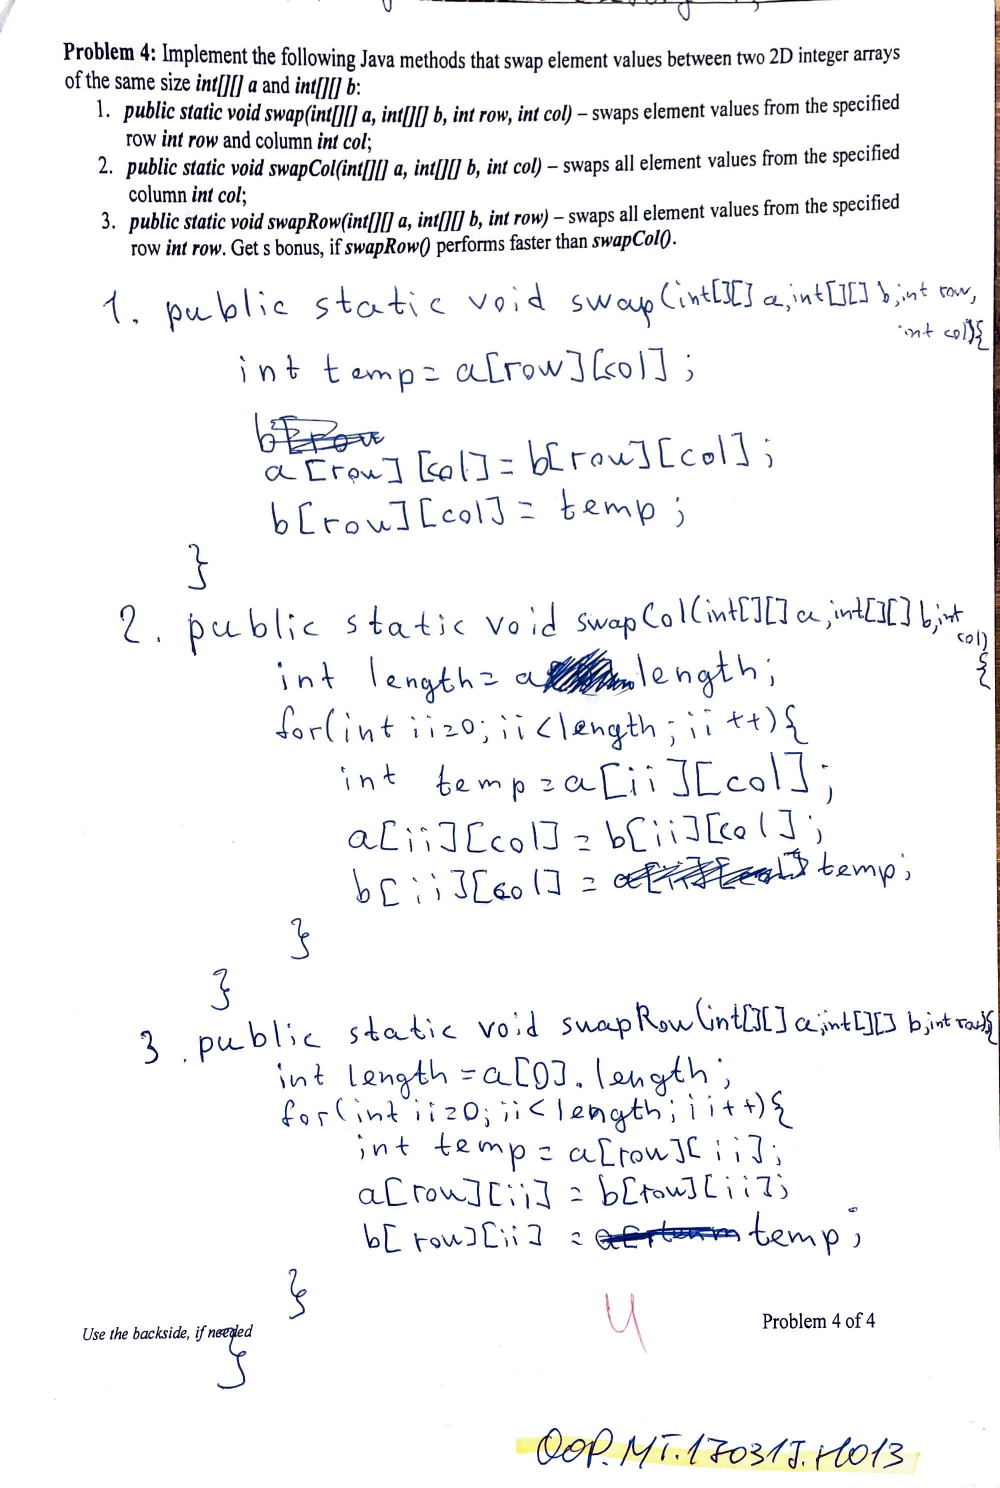 Problem 4: Implement the following Java methods that swap element values between two 2D integer arrays
of the same size int[][] a and int[][] b:
1. public static void swap(int[][] a, int[][] b, int row, int col) – swaps element values from the specified
row int row and column int col;
2. public static void swapCol(int[][] a, int[][] b, int col) – swaps all element values from the specified
column int col;
3. public static void swapRow(int[][] a, int[][] b, int row) – swaps all element values from the specified
row int row. Get s bonus, if swapRow() performs faster than swapCol().
1. public static void swap(int[][] a, int[][] b, int row,
int col){
int temp = a[row][col];
a[row][col] = b[row][col];
b[row][col] = temp;
}
2. public static void swapCol(int[][] a, int[][] b, int
col)
{
int length = a.length;
for(int ii=0; ii<length; ii++){
int temp = a[ii][col];
a[ii][col] = b[ii][col];
b[ii][col] = temp;
}
}
3. public static void swapRow(int[][] a, int[][] b, int row){
int length = a[0].length;
for(int ii=0; ii<length; ii++){
int temp = a[row][ii];
a[row][ii] = b[row][ii];
b[row][ii] = temp;
}
Use the backside, if needed
Problem 4 of 4
}